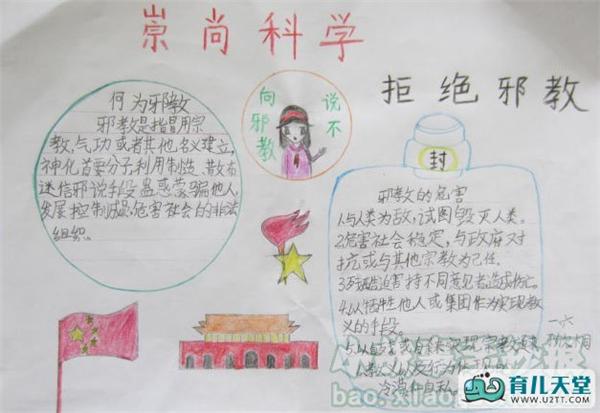 崇尚科学
拒绝邪教
何为邪教
邪教是指冒用宗
教,气功或者其他名义建立,
神化首要分子利用制造、散布
迷信邪说手段蛊惑蒙骗他人,
发展控制成员,危害社会的非法
组织。
向邪教
说不
封
邪教的危害
1.与人类为敌,试图毁灭人类。
2.危害社会稳定,与政府对
抗或与其他宗教为己任。
3.残酷迫害持不同意见者,造成伤亡。
4.以牺牲他人或集团作为实现教
义的手段。
5.以自杀或自残实现宗教
教义以及行为
冷漠和自私
一六
育儿天堂
www.u2tt.com